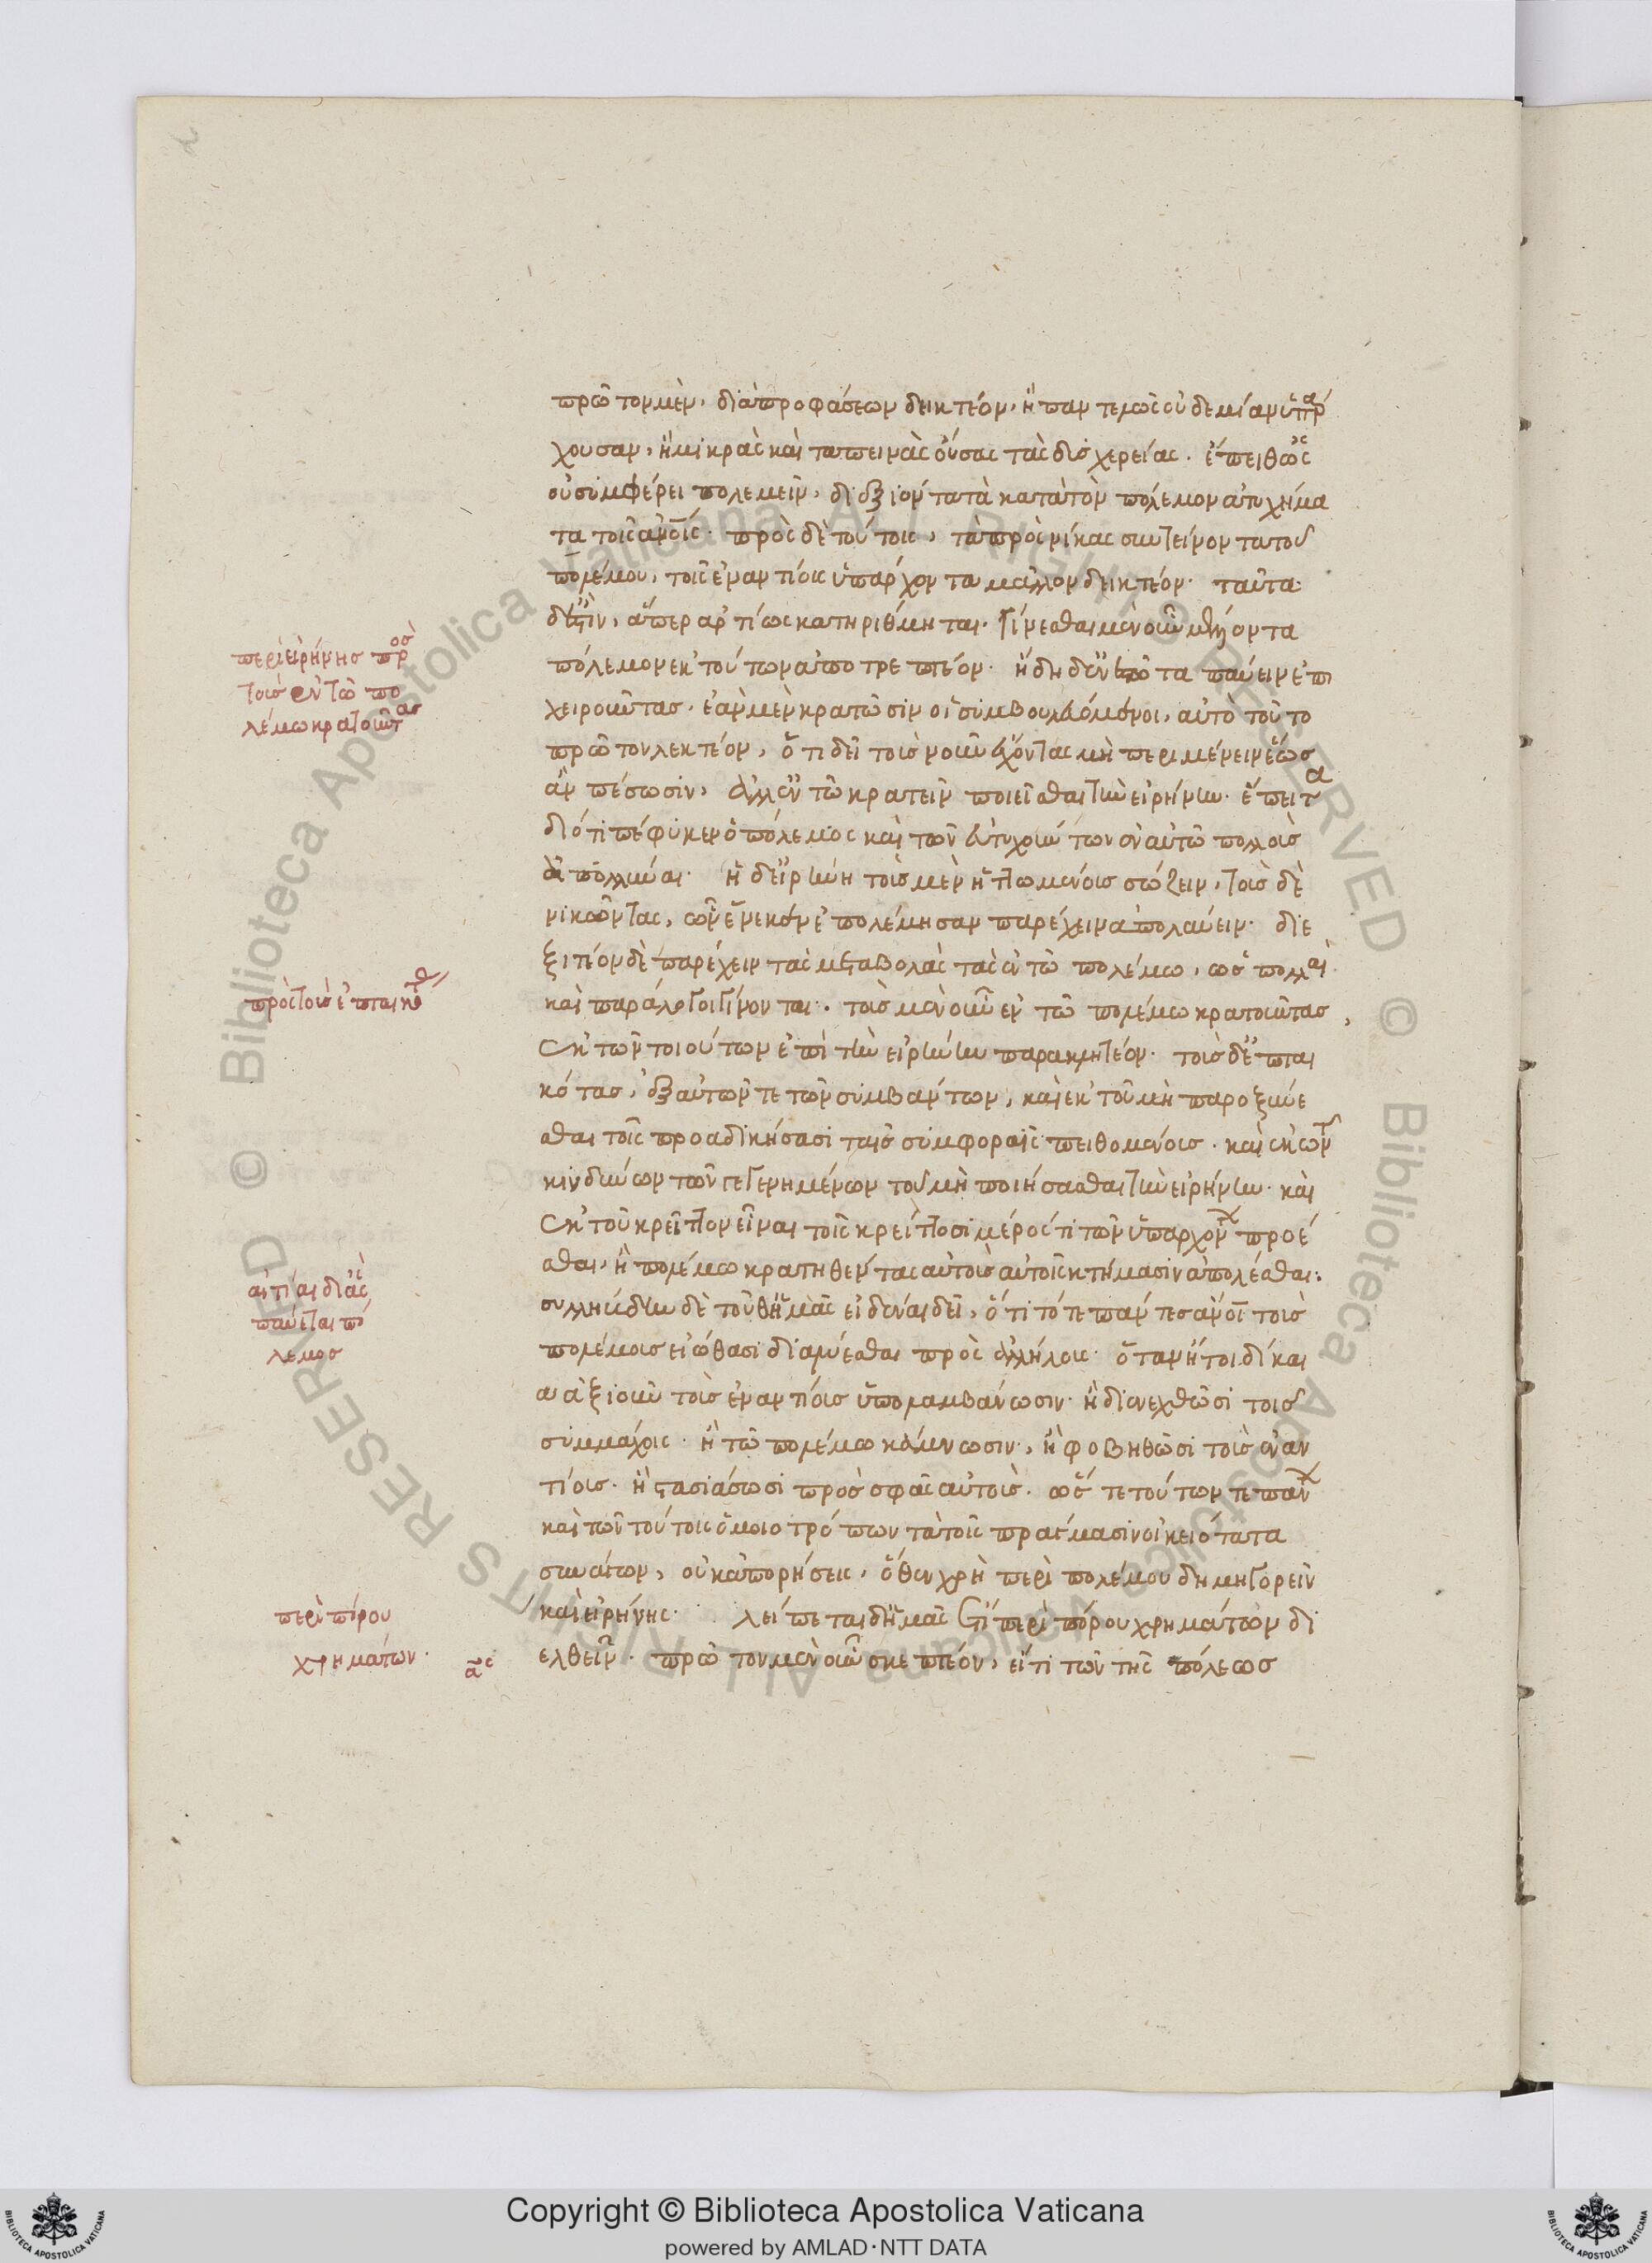 πρῶτον μὲν, διὰ προφάσεων δεικτέον, ἢ παντελῶς οὐδεμίαν ὑπάρ
χουσαν, ἢ μικρὰς καὶ ταπεινὰς οὔσας τὰς δυσχερείας. ἔπειθ' ὡς
οὐ συμφέρει πολεμεῖν, διεξιόντα τὰ κατὰ τὸν πόλεμον ἀτυχήμα
τα τοῖς ἀνοις. πρὸς δὲ τούτοις, τὰ πρὸς νίκας συντείνοντα τοῦ
πολέμου, τοῖς ἐναντίοις ὑπάρχοντα μᾶλλον δεικτέον. ταῦτα
δ' ἐστὶν, ἅπερ ἀρτίως κατηρίθμηται. γίνεσθαι μὲν οὖν μέλλοντα
πόλεμον ἐκ τούτων ἀποτρεπτέον. ἤδη δ' ἐνεστῶτα παύειν ἐπι
χειροῦντας. ἐὰν μὲν κρατῶσιν οἱ συμβουλευόμενοι, αὐτὸ τοῦτο
πρῶτον λεκτέον, ὅτι δεῖ τοὺς νοῦν ἔχοντας μὴ περιμένειν ἕως
ἂν πέσωσιν, ἀλλ' ἐν τῷ κρατεῖν ποιεῖσθαι τὴν εἰρήνην. ἔπειτα
διότι πέφυκεν ὁ πόλεμος καὶ τῶν εὐτυχούντων ἐν αὐτῷ πολλοὺς
ἀπολλύναι. ἡ δ' εἰρήνη τοὺς μὲν ἡττωμένους σώζειν, τοὺς δὲ
νικῶντας, ὧν ἕνεκεν ἐπολέμησαν παρέχειν ἀπολαύειν. διε
ξιτέον δὲ παρέχειν τὰς μεταβολὰς τὰς ἐν τῷ πολέμω, ὡς πολλαὶ
καὶ παράλογοι γίνονται. τοὺς μὲν οὖν ἐν τῷ πολέμω κρατοῦντας,
ἐκ τῶν τοιούτων ἐπὶ τὴν εἰρήνην παρακλητέον. τοὺς δ' ἐπται
κότας, ἐξ αὐτῶν τε τῶν συμβάντων, καὶ ἐκ τοῦ μὴ παροξύνε
σθαι τοῖς προαδικήσασι ταῖς συμφοραῖς πειθομένους. καὶ ἐκ τῶν
κινδύνων τῶν γεγενημένων τοῦ μὴ ποιήσασθαι τὴν εἰρήνην. καὶ
ἐκ τοῦ κρεῖττον εἶναι τοῖς κρείττοσι μέρος τι τῶν ὑπαρχόντων προέ
σθαι, ἢ πολέμω κρατηθέντας αὐτοὺς αὐτοῖς κτήμασιν ἀπολέσθαι.
συλλήβδην δὲ τοῦθ' ἡμᾶς εἰδέναι δεῖ, ὅτι τότε πάντες ἄνοι τοὺς
πολέμους εἰώθασι διαλύεσθαι πρὸς ἀλλήλους. ὅταν ἤτοι δίκαι
α ἀξιοῦν τοὺς ἐναντίους ὑπολαμβάνωσιν. ἢ διενεχθῶσι τοῖς
συμμάχοις. ἢ τῷ πολέμω κάμνωσιν, ἢ φοβηθῶσι τοὺς ἐναν
τίους. ἢ στασιάσωσι πρὸς σφᾶς αὐτοὺς. ὥστε τούτων τε πάντων
καὶ τῶν τούτοις ὁμοιοτρόπων τὰ τοῖς πράγμασιν οἰκειότατα
συνάγων, οὐκ ἀπορήσεις, ὅθεν χρὴ περὶ πολέμου δημηγορεῖν
καὶ εἰρήνης. λείπεται δ' ἡμᾶς ἔτι περὶ πόρου χρημάτων δι
ελθεῖν. πρῶτον μὲν οὖν σκεπτέον, εἴ τι τῶν τῆς πόλεως
περὶ εἰρήνης πρὸς
τοὺς ἐν τῷ πο
λέμω κρατοῦντας
πρὸς τοὺς ἐπταικό
αἰτίαι δι' ἃς
παύεται πό
λεμος
περὶ πόρου
χρημάτων.
Copyright © Biblioteca Apostolica Vaticana
powered by AMLAD·NTT DATA